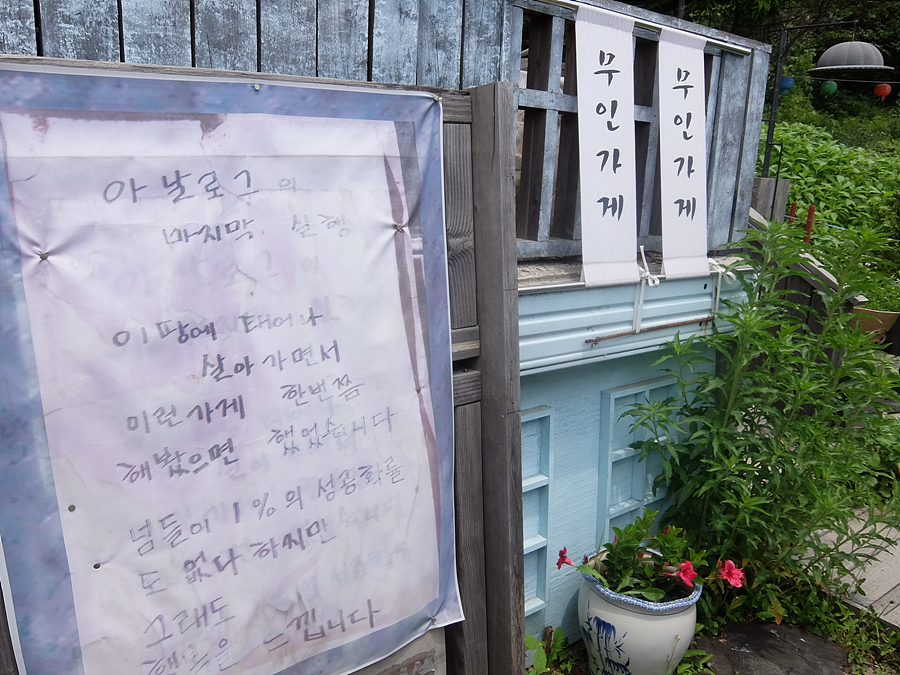 아날로그의
마지막 실행
이 땅에 태어나
살아가면서
이런가게 한번쯤
해봤으면 했었습니다
넘들이 1%의 성공확률
도 없다 하지만
그래도
행복을 느낍니다
무인가게
무인가게